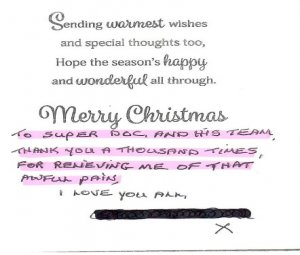 Sending warmest wishes
and special thoughts too,
Hope the season's happy
and wonderful all through.
Merry Christmas
TO SUPER DOC, AND HIS TEAM,
THANK YOU A THOUSAND TIMES,
FOR RELIEVING ME OF THAT
AWFUL PAIN,
I LOVE YOU ALL,
X